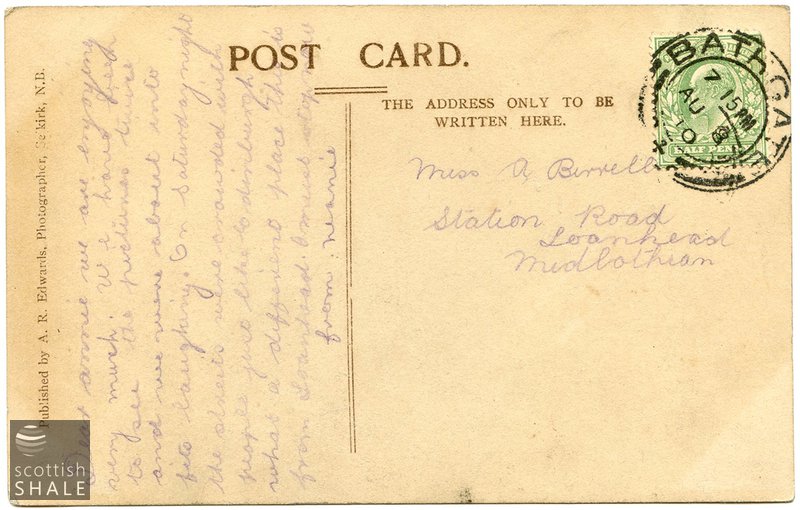 POST CARD.
THE ADDRESS ONLY TO BE
WRITTEN HERE.
BATHGATE
7 15PM
AU
10
HALF PENNY
Miss A Birrell
Station Road
Loanhead
Midlothian
Published by A. R. Edwards, Photographer, Selkirk, N.B.
Dear Annie we are enjoying
very much. We have been
to see the pictures twice
and we were about into
fits laughing. On Saturday night
the streets were crowded with
people just like Edinburgh
what a different place this is
from Loanhead. I must stop now
from Neanie
scottish
SHALE